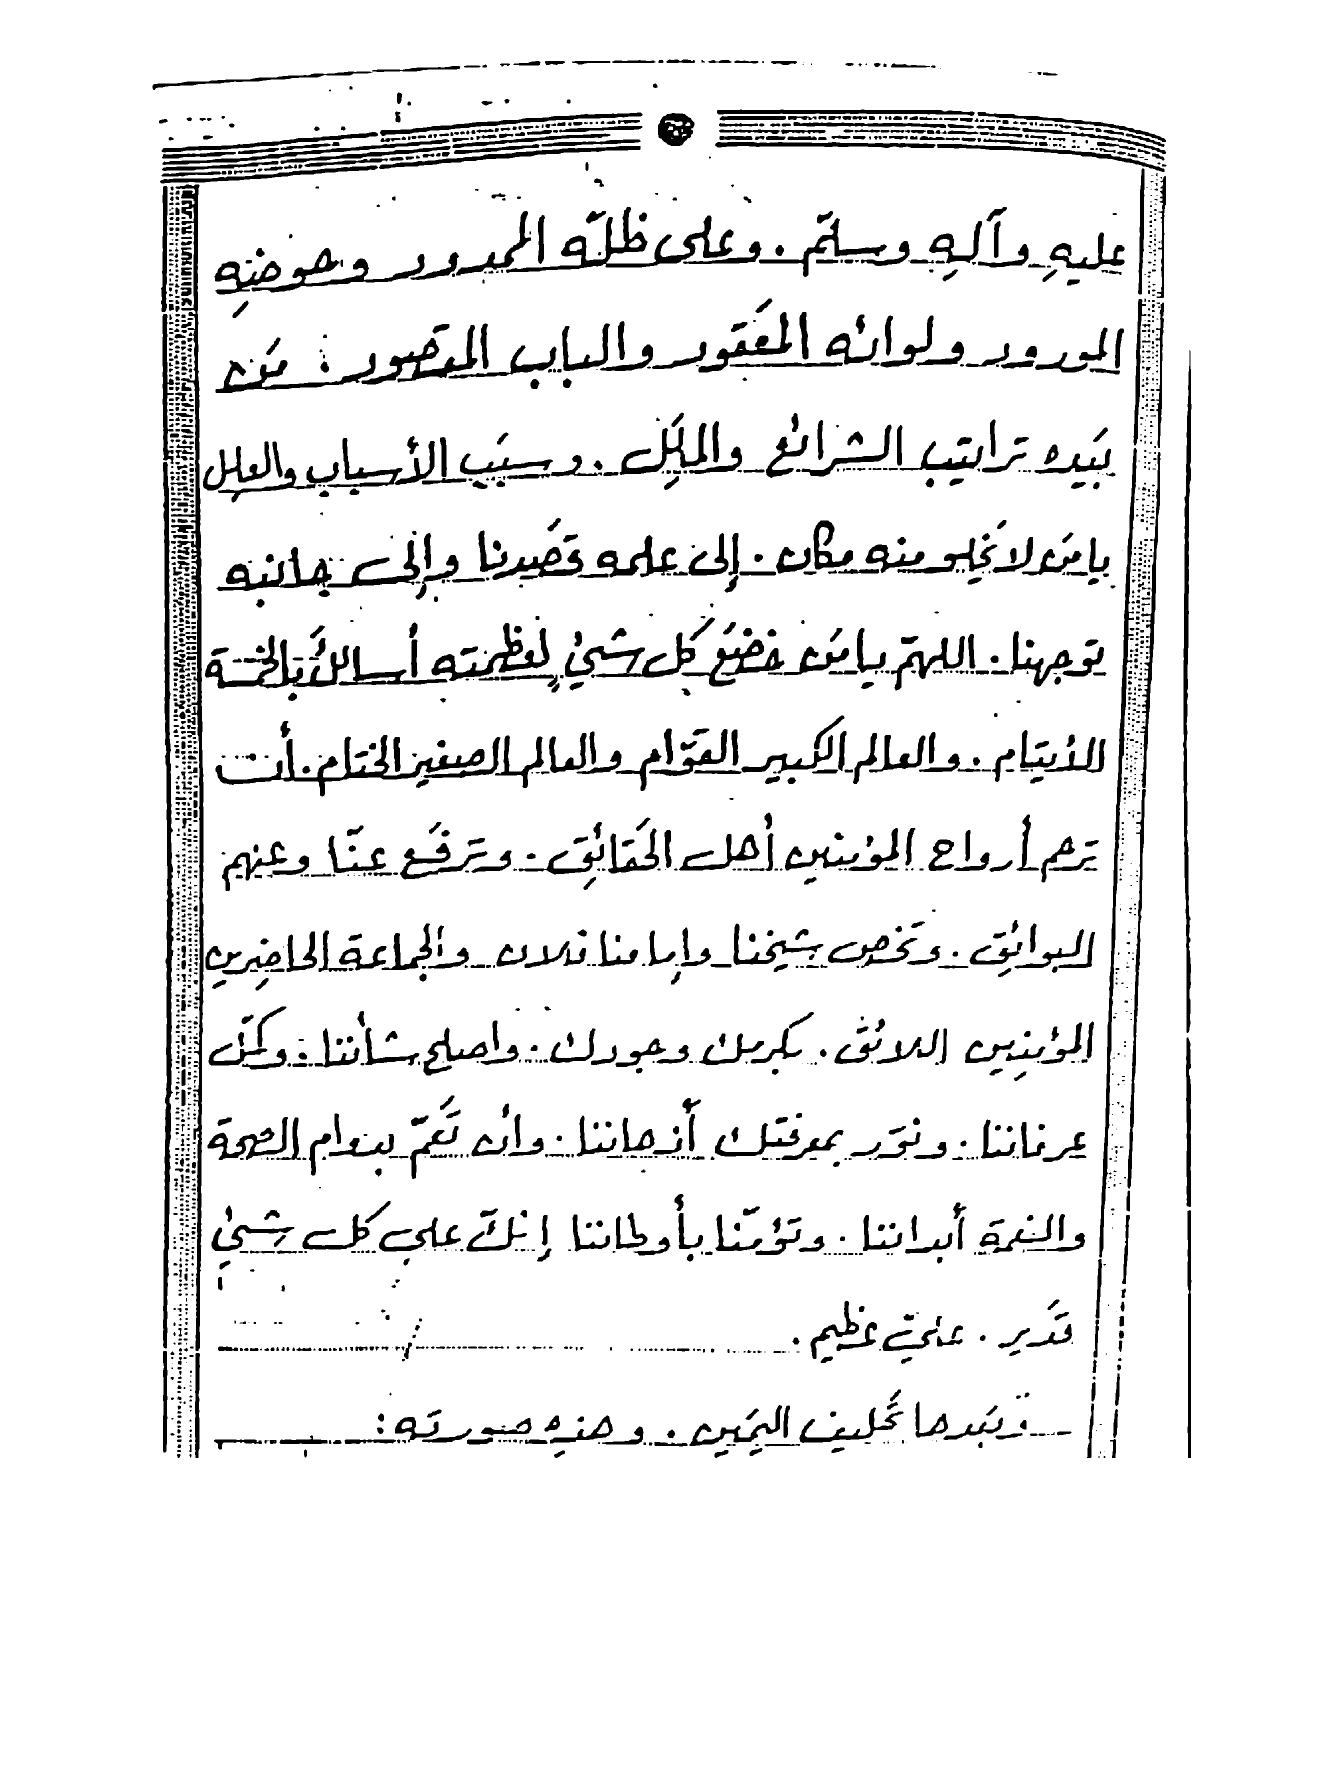 عليهِ وآلهِ وسلّم . وعلى ظلّه الممدود وحوضهِ
المورود ولوائه المعَقود والباب المقصود . مَن
بيَده تراتيب الشرائع والملِل . وسبَب الأسباب والعِلل
يا مَن لا يَخلو منه مكان . إلى علمه قصَدنا وإلى جانبه
توجهنا . اللهمّ يا مَن خضَع كل شيءٍ لعظمته أسألك بالخمَسة
الأيتام . والعالم الكبير القوّام والعالم الصغير الختام . أنت
ترحم أرواح المؤمنين أهل الحَقائِق . وترفَع عنّا وعنهم
البوائِق . وتخص شيخنا وإمامنا فلان والجماعة الحاضِرين
المؤمنِين اللائق . بكرمك وجودك . واصلح شأننا . وكمّل
عرفاننا . ونوّر بمعرفتك أذهاننا . وأن تعَمّ بدوام الصحة
والنعمة أبداننا . وتؤمّنا بأوطاننا إنكّ على كل شيءٍ
قدَير . عليّ عظيم .
وبَعدها تحليف اليمَين . وهذه صورته :